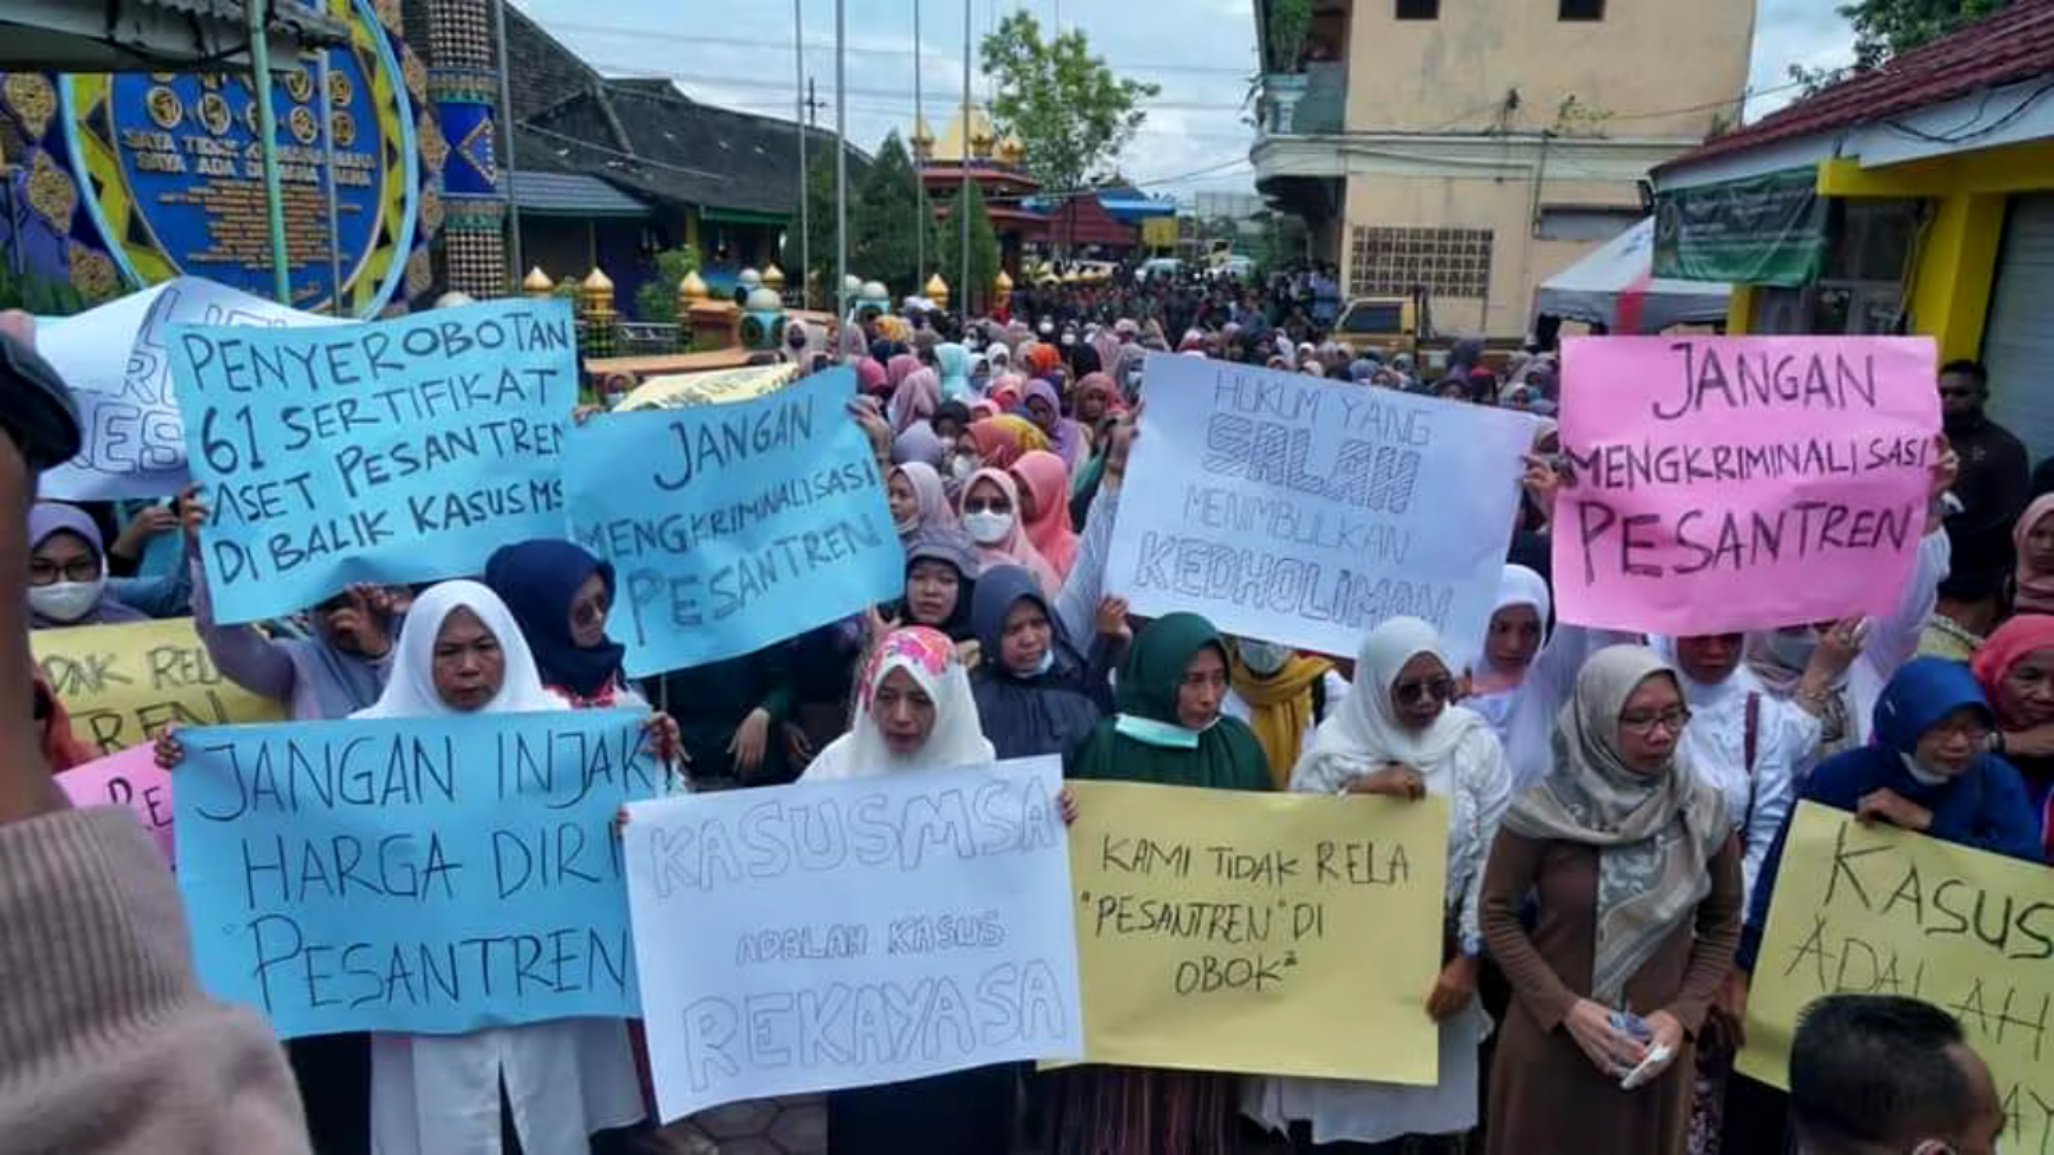 SAYA TIDAK
SAYA ADA
PENYEROBOTAN
61 SERTIFIKAT
ASET PESANTREN
DI BALIK KASUS MS
JANGAN
MENGKRIMINALISASI
PESANTREN
HUKUM YANG
SALAH
MENIMBULKAN
KEDHOLIMAN
JANGAN
MENGKRIMINALISASI
PESANTREN
RELA
JANGAN INJAK
HARGA DIRI
"PESANTREN
KASUS MSA
ADALAH KASUS
REKAYASA
KAMI TIDAK RELA
"PESANTREN" DI
OBOK²
KASUS
ADALAH